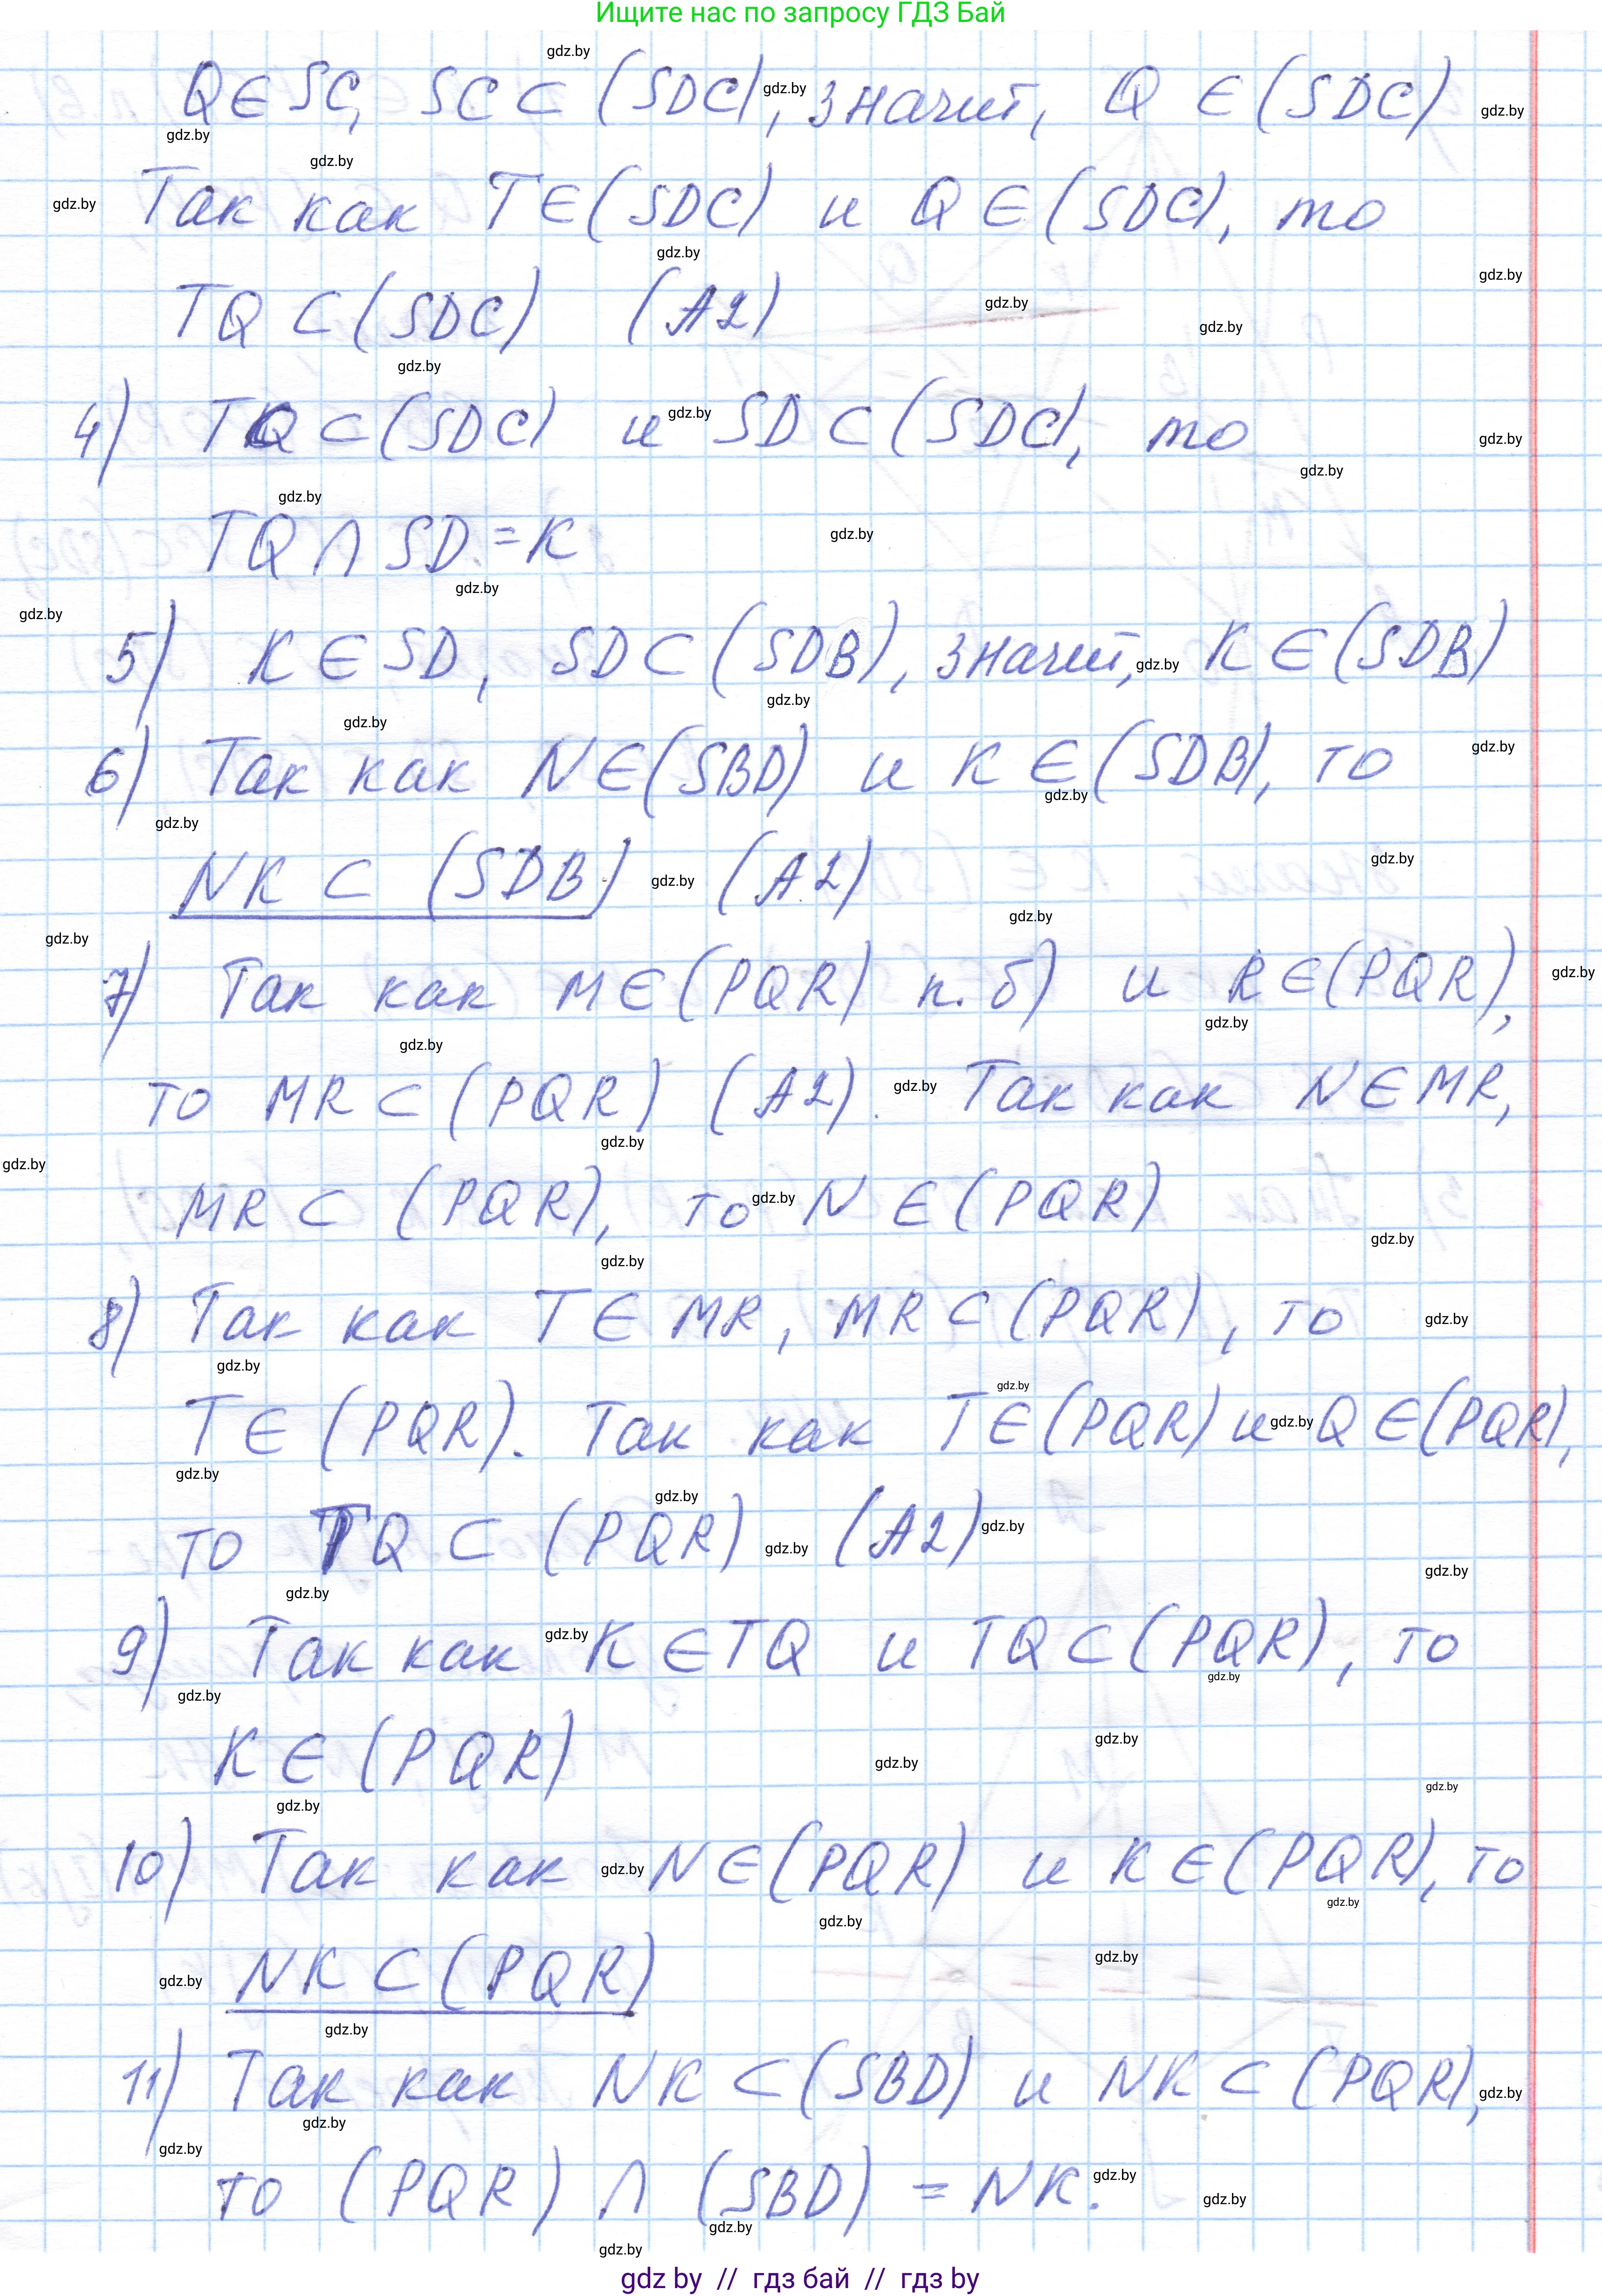 Ищите нас по запросу ГДЗ Бай
Q∈SC, SC⊂(SDC), значит, Q∈(SDC)
Так как T∈(SDC) и Q∈(SDC), то
TQ⊂(SDC) (A2)
4) TQ⊂(SDC) и SD⊂(SDC), то
TQ∩SD=K
5) K∈SD, SD⊂(SDB), значит, K∈(SDB)
6) Так как N∈(SBD) и K∈(SDB), то
NK⊂(SDB) (A2)
7) Так как M∈(PQR) п.б) и R∈(PQR),
то MR⊂(PQR) (A2). Так как N∈MR,
MR⊂(PQR), то N∈(PQR)
8) Так как T∈MR, MR⊂(PQR), то
T∈(PQR). Так как T∈(PQR) и Q∈(PQR),
то TQ⊂(PQR) (A2)
9) Так как K∈TQ и TQ⊂(PQR), то
K∈(PQR)
10) Так как N∈(PQR) и K∈(PQR), то
NK⊂(PQR)
11) Так как NK⊂(SBD) и NK⊂(PQR),
то (PQR)∩(SBD)=NK.
gdz by // гдз бай // гдз by